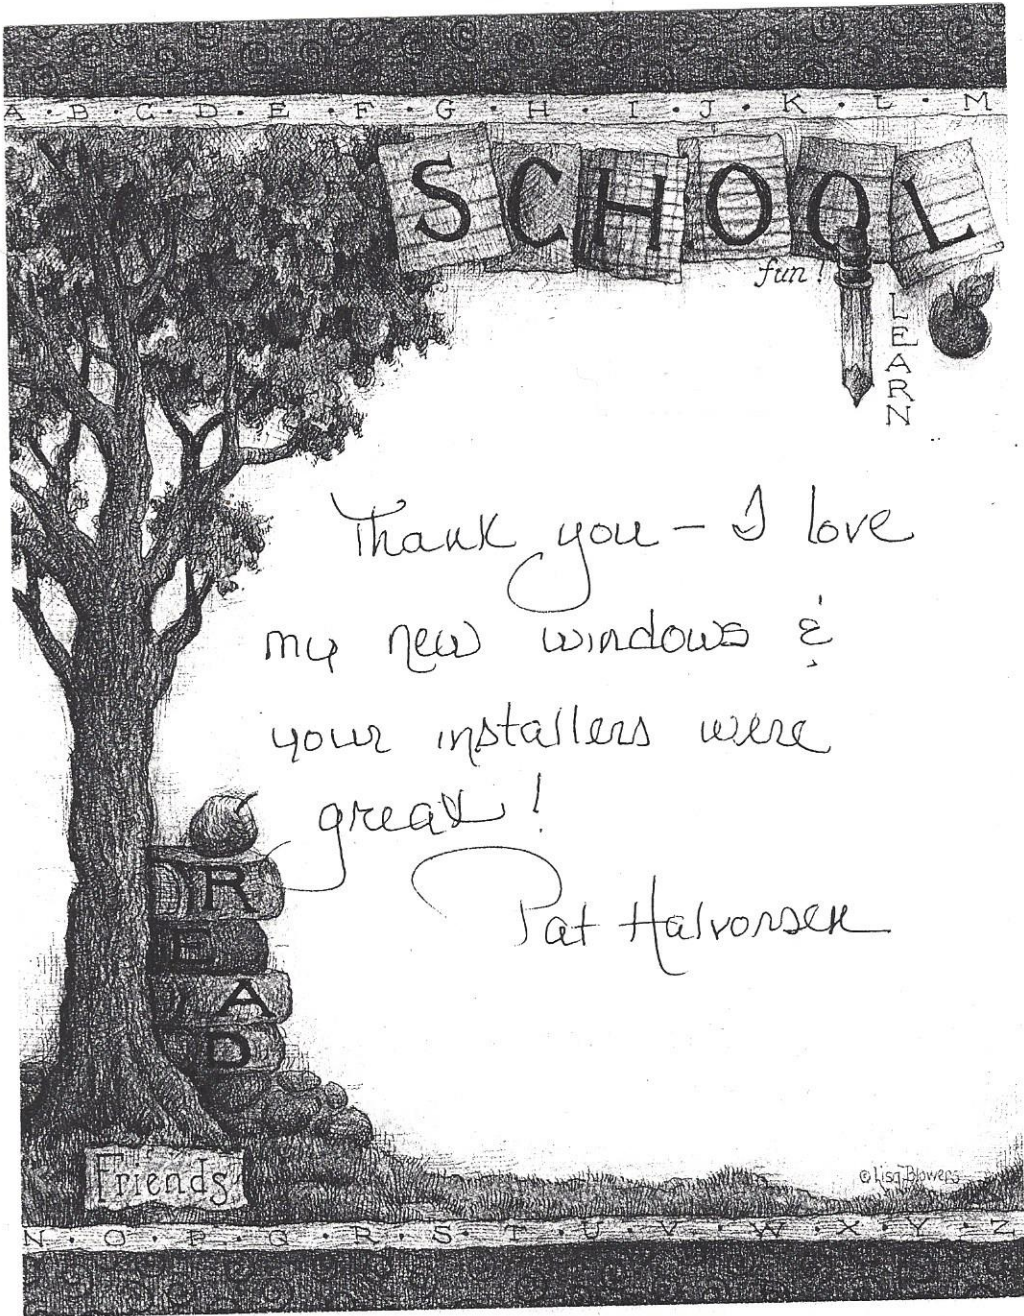 A · B · C · D · E · F · G · H · I · J · K · L · M
SCHOOL
fun!
LEARN
Thank you – I love
my new windows &
your installers were
great!
Pat Halvorsen
READ
Friends
©Lisa Blowers
N · O · P · Q · R · S · T · U · V · W · X · Y · Z